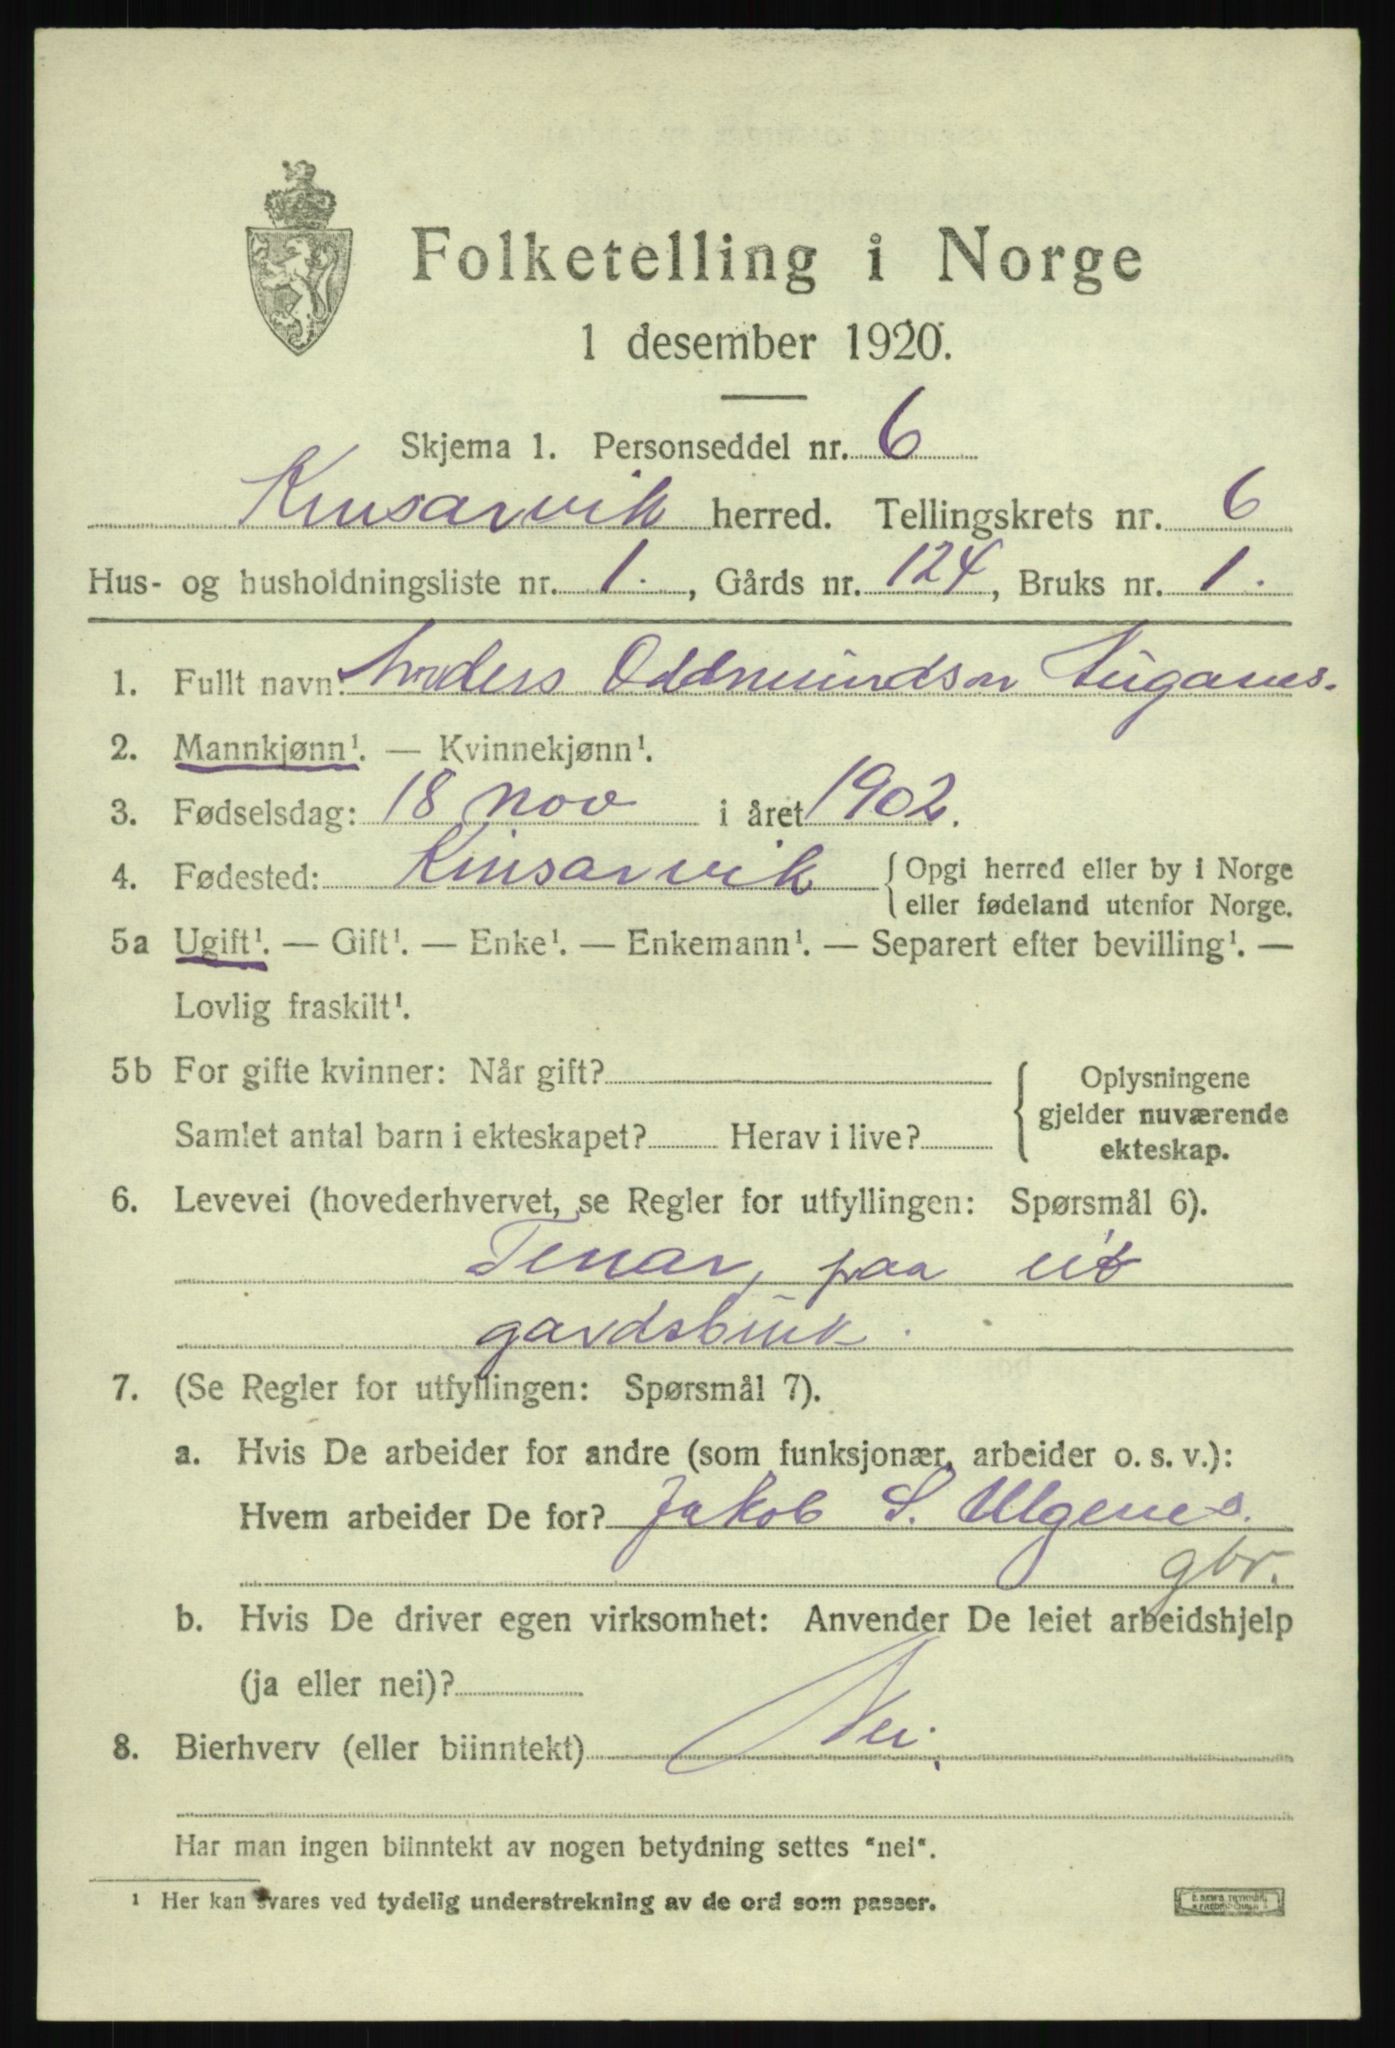 Folketelling i Norge
1 desember 1920.
Skjema 1. Personseddel nr. 6
Kinsarvik herred. Tellingskrets nr. 6
Hus- og husholdningsliste nr. 1., Gårds nr. 124, Bruks nr. 1.
1. Fullt navn: Anders Oddmundsen
2. Mannkjønn¹. — Kvinnekjønn¹.
3. Fødselsdag: 18 nov i året 1902.
4. Fødested: Kinsarvik { Opgi herred eller by i Norge
eller fødeland utenfor Norge.
5a Ugift¹. — Gift¹. — Enke¹. — Enkemann¹. — Separert efter bevilling¹. —
Lovlig fraskilt¹.
5b For gifte kvinner: Når gift?
Samlet antal barn i ekteskapet? Herav i live?
{ Oplysningene
gjelder nuværende
ekteskap.
6. Levevei (hovederhvervet, se Regler for utfyllingen: Spørsmål 6).
Tenar, paa eit
gardsbruk.
7. (Se Regler for utfyllingen: Spørsmål 7).
a. Hvis De arbeider for andre (som funksjonær, arbeider o. s. v.):
Hvem arbeider De for? Jakob S. Ulgenes.
gbr.
b. Hvis De driver egen virksomhet: Anvender De leiet arbeidshjelp
(ja eller nei)?
8. Bierhverv (eller biinntekt) Nei.
Har man ingen biinntekt av nogen betydning settes "nei".
¹ Her kan svares ved tydelig understrekning av de ord som passer.